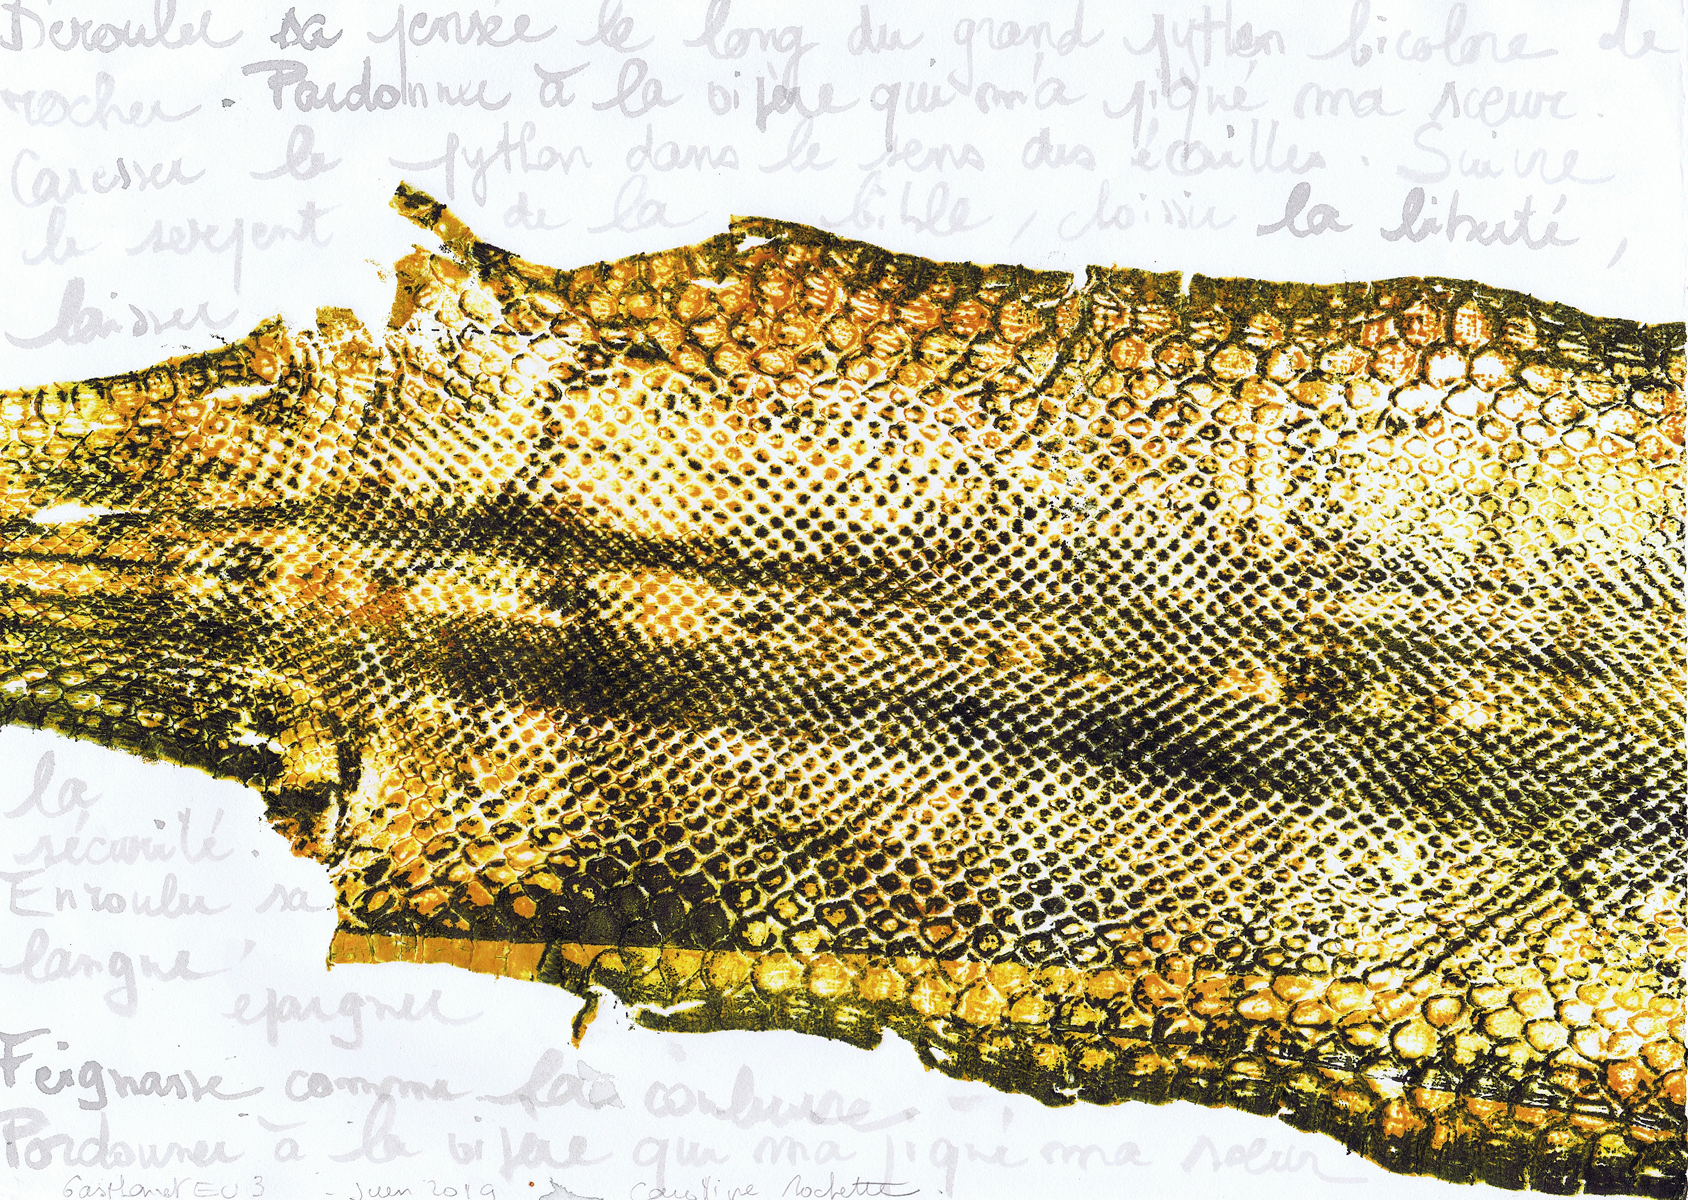 Dérouler sa pensée le long du grand python bicolore de
rocher. Pardonner à la vipère qui m'a piqué ma sœur.
Caresser le python dans le sens des écailles. Suivre
le serpent de la bible, choisir la liberté,
laisser
la
sécurité.
Enrouler sa
langue
épargner
Feignasse comme la couleuvre.
Pardonner à la vipère qui m'a piqué ma sœur
3 - Juin 2019 Caroline Rochette.